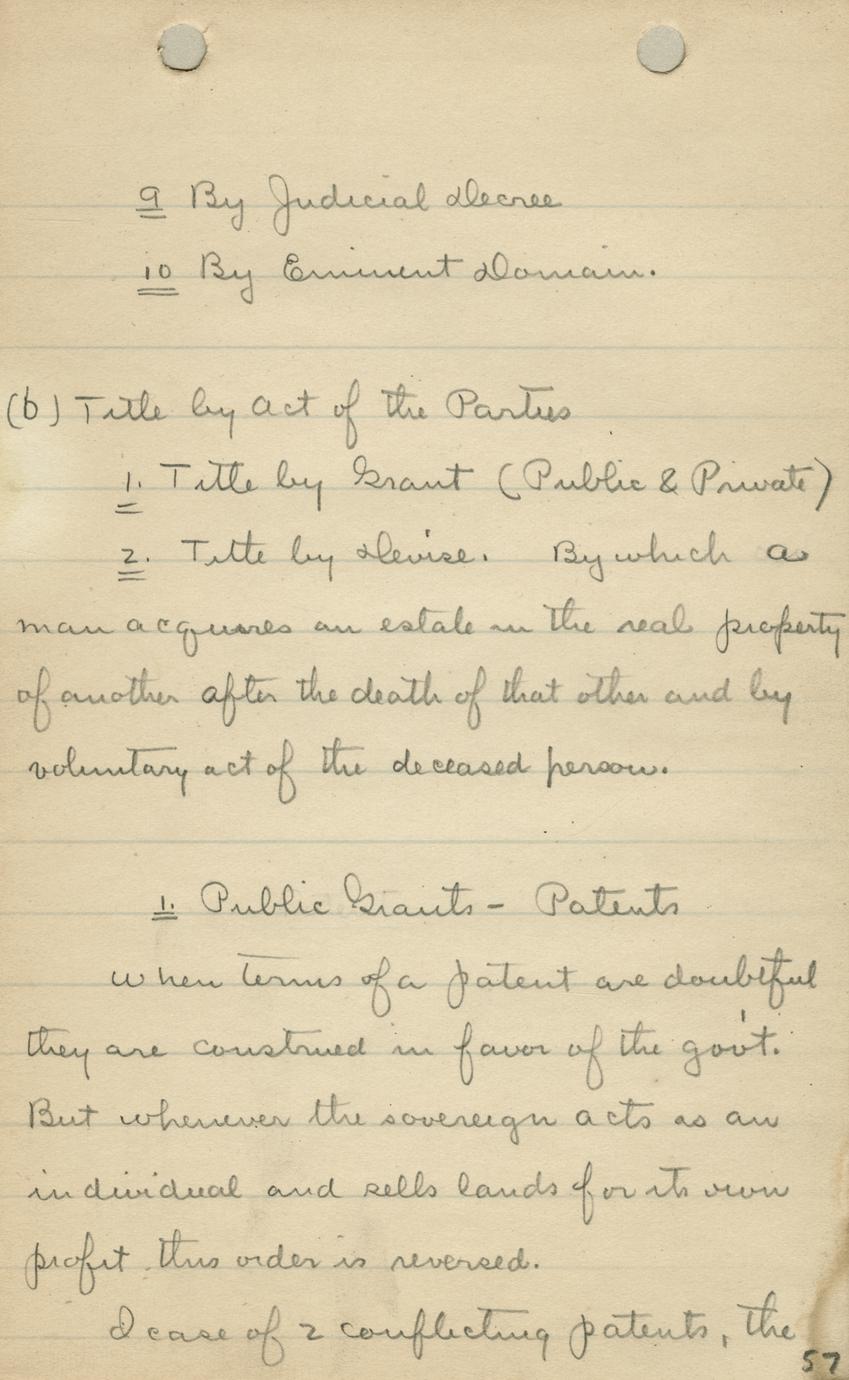 9 By Judicial Decree
10 By Eminent Domain.
(b) Title by Act of the Parties
1. Title by Grant (Public & Private)
2. Title by Devise. By which a
man acquires an estate in the real property
of another after the death of that other and by
voluntary act of the deceased person.
1. Public Grants - Patents
When terms of a patent are doubtful
they are construed in favor of the gov't.
But whenever the sovereign acts as an
individual and sells lands for its own
profit this order is reversed.
I case of 2 conflicting patents, the
57